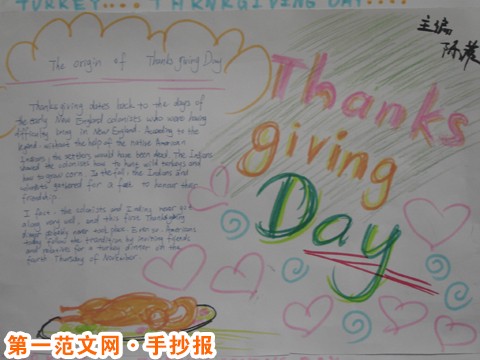 TURKEY.... THANKSGIVING DAY....
主编
The origin of Thanksgiving Day
Thanksgiving dates back to the days of
the early New England colonizes who were having
difficulty living in New England. According to the
legend, without the help of the native American
Indians, the settlers would have been dead. The Indians
showed the colonises how to hung wild turkeys and
how to grow corn. In the fall, the Indians and
gathered for a feast to honour their
friendship.
I fact, the colonists and Indians never got
along very well, and this first Thanksgiving
never took place. Even so, Americans
today follow the tradition by inviting friends
and for a turkey dinner on the
fourst Thursday of November.
Thanks
giving
Day
第一范文网·手抄报